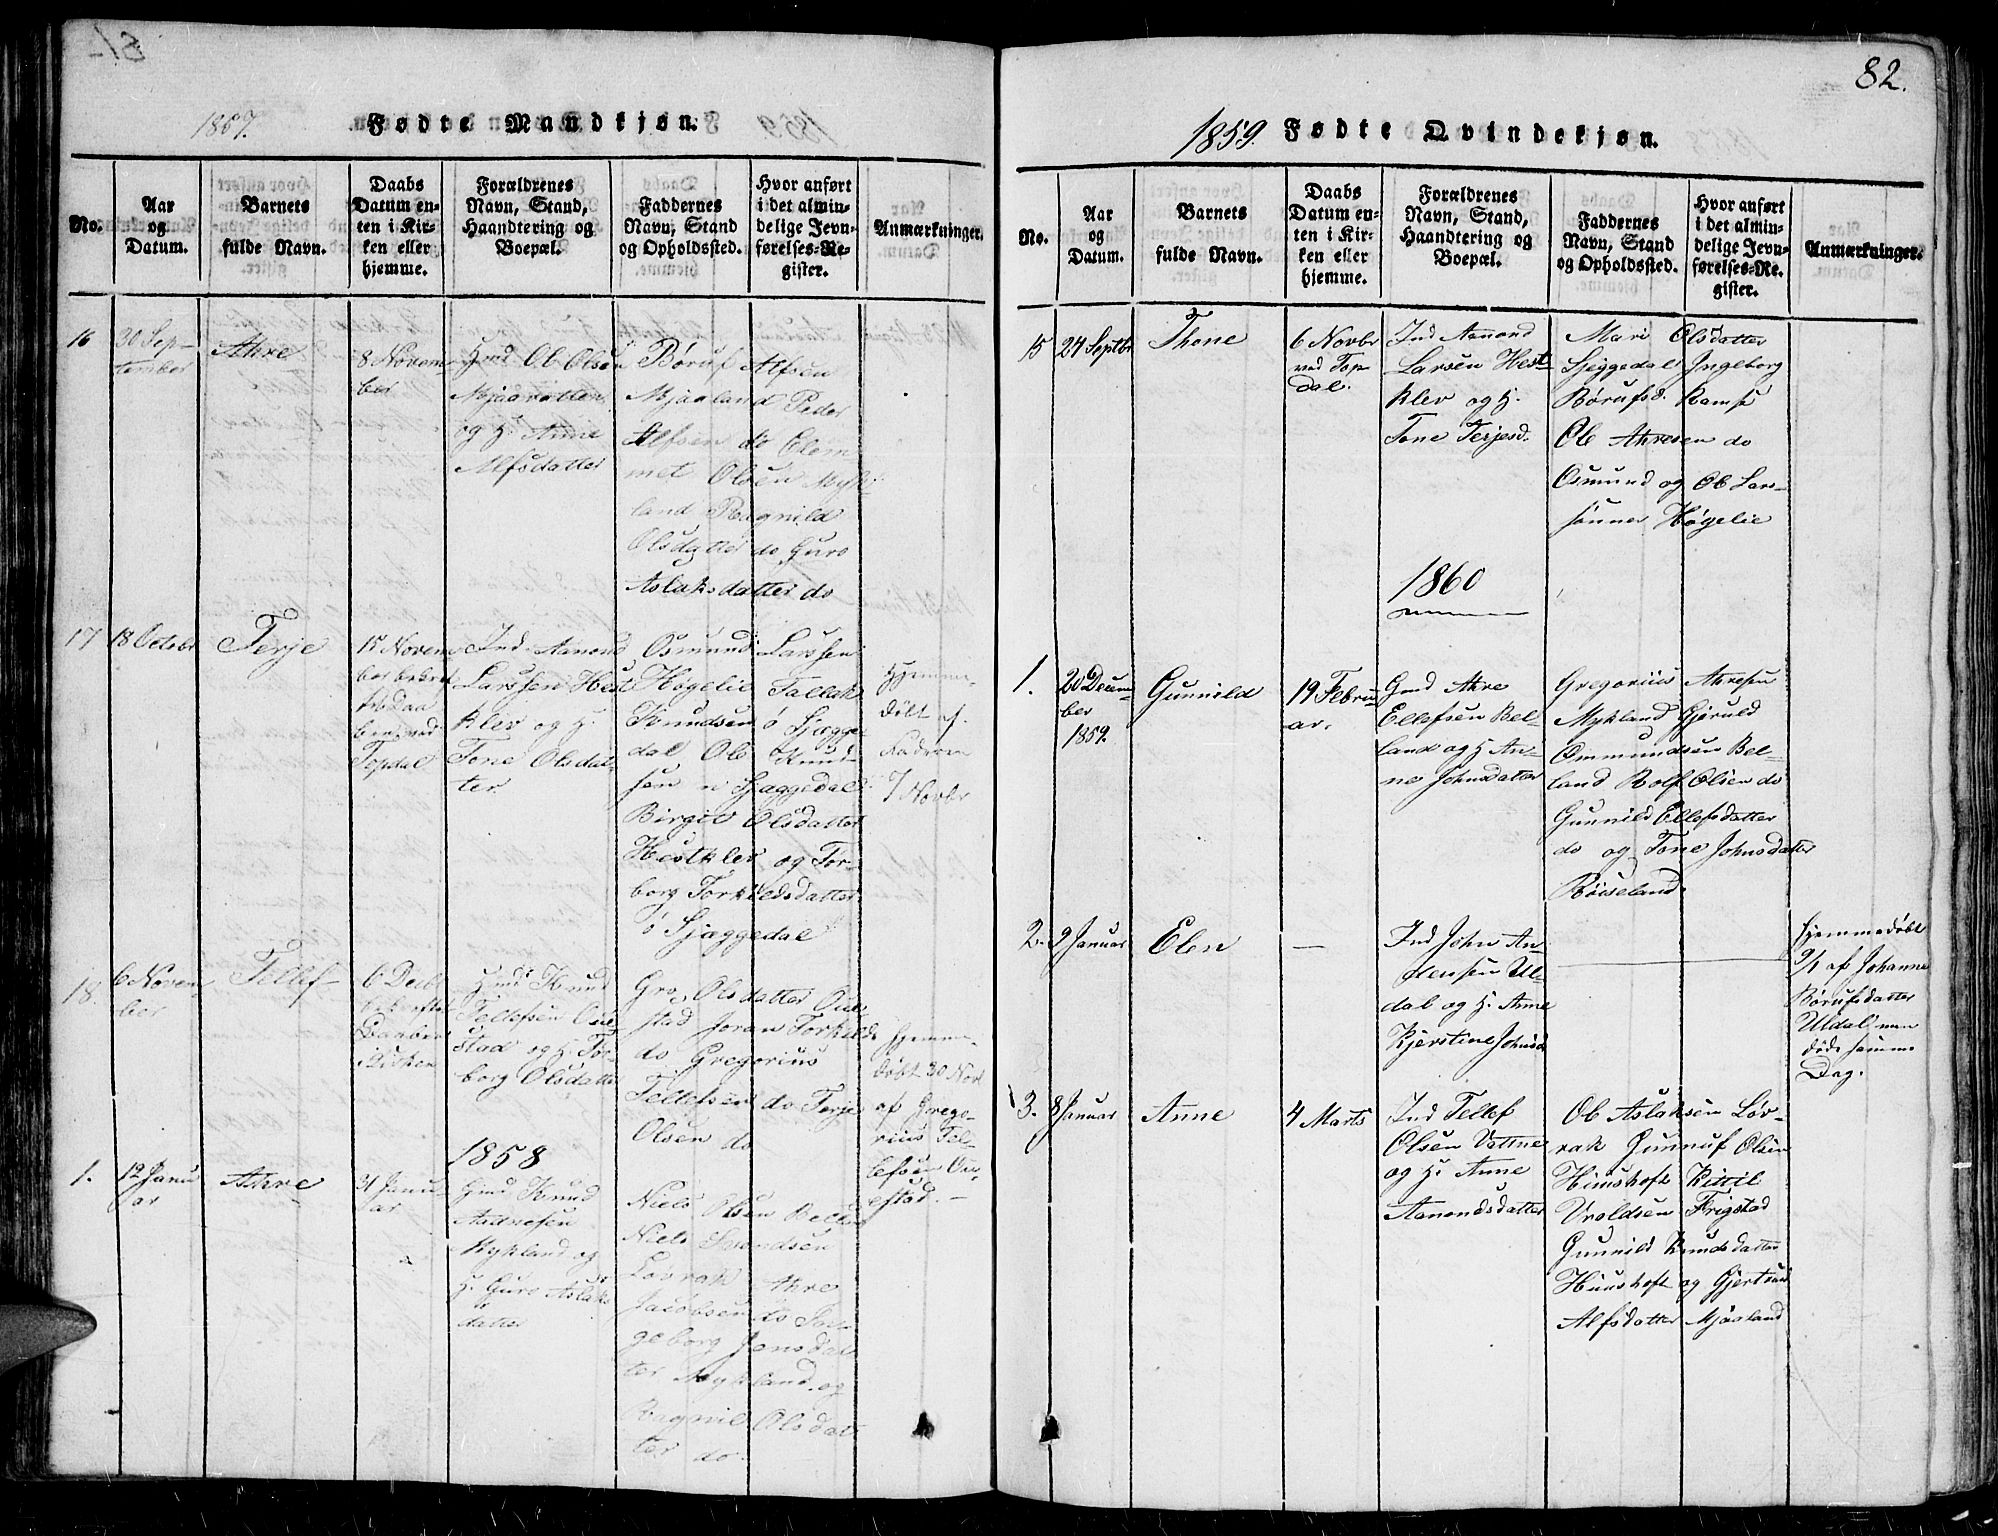 1857. Fødte Mandkjøn.
No.
Aar
og
Datum.
Barnets
fulde Navn.
Daabs
Datum en-
ten i Kir-
ken eller
hjemme.
Forældrenes
Navn, Stand,
Haandtering og
Boepæl.
Faddernes
Navn, Stand
og Opholdssted.
Hvor anført
i det almin-
delige Jevn-
førelses-Re-
gister.
Anmærkninger.
16
30 Sep-
tember
Ahre
8 Novem-
ber
Gmd Ole Olsen
Mjaavatten
og H. Anne
Alfsdatter
Børuf Alfsen
Mjaaland Peder
Alfsen do Clem
met Olsen Myk-
land Ragnild
Olsdatter do Guro
Aslaksdatter do
17
18 Octobr
Terje
15 Novem-
ber bekræf
tet Daa
ben ved
Topdal
Ind. Aanond
Larssen Hest
klev og H.
Tone Olsdat-
ter
Osmund Larssen
Høgelie Tallak
Knudsen ø Sjægge-
dal Ole Knud-
sen n Sjæggedal
Birgit Olsdatter
Hestklev og Tor-
borg Torkildsdatter
ø Sjæggedal
Hjemme-
døbt af
Faderen
7 Novbr
18.
6 Novem-
ber
Tellef
6 Decbr
bekræftet
Daaben
i Kirken
Gmd Knud
Tellefsen Oue-
stad og H. Tor-
borg Olsdatter
Gro Olsdatter Oue-
stad Joran Torkilds
do Gregorius
Tellefsen do Terje
Olsen do
Hjemme-
døbt 30 Novb
af Grego-
rius Tel-
lefsen Ou-
estad. —
1858
1.
12 Janu
ar
Ahre
31 Janu-
ar
Gmd Knud
Aadnesen
Mykland og
H. Guro Aslaks
datter
Niels Olsen Belland
Niels Svendsen
Løvrak Ahre
Jacobsen do In-
geborg Jensdat
ter Mykland og
Ragnil Olsdat
ter do.
82.
1859. Fødte Qvindekjøn.
No.
Aar
og
Datum.
Barnets
fulde Navn.
Daabs
Datum en-
ten i Kir-
ken eller
hjemme.
Forældrenes
Navn, Stand,
Haandtering og
Boepæl.
Faddernes
Navn, Stand
og Opholdssted.
Hvor anført
i det almin-
delige Jevn-
førelses-Re-
gister.
Anmærkninger.
15
24 Septbr
Thone
6 Novbr
ved Top
dal.
Ind Aanond
Larsen Hest
klev og H.
Tone Terjesd.
Mari Olsdatter
Sjeggedal Ingeborg
Børufsd. Ramse
Ole Ahresen do
Osmund og Ole Lars-
sønner Høgelie
1860
1.
20 Decem-
ber
1859.
Gunnild
19 Febru-
ar.
Gmd Ahre
Ellefsen Bel-
land og H An-
ne Johnsdatter
Gregorius Ahresen
Mykland Gjeruld
Ommundsen Bel-
land Rolf Olsen do
Gunnild Ellefsdatter
do og Tone Johnsdatter
Røiseland
2.
9 Januar
Elen
—
Ind John An-
dersen Ul-
dal og H. Anne
Kjerstine Johnsd
Hjemmedøbt
9/1 af Johanne
Børufsdatter
Uldal, men
døde samme
Dag.
3.
8 Januar
Anne
4 Marts
Ind Tellef
Olsen Vattne
og H. Anne
Aanondsdatter
Ole Aslaksen Løv-
rak Gunnuf Olsen
Huushoft Kittil
Vroldsen Frigstad
Gunnild Knudsdatter
Huushoft og Gjertrud
Alfsdatter Mjaaland